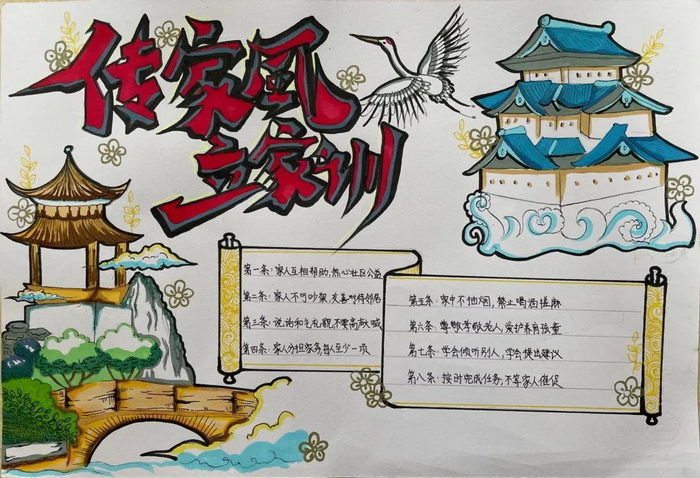 传家風
立家训
第一条：家人互相帮助，热心社区公益
第二条：家人不可吵架，友善对待邻居
第三条：说话和气礼貌，不要高声大喊
第四条：家人分担家务，每人至少一项
第五条：家中不抽烟，禁止喝酒搓麻
第六条：尊敬孝敬老人，爱护养育孩童
第七条：学会倾听别人，学会提出建议
第八条：按时完成任务，不等家人催促